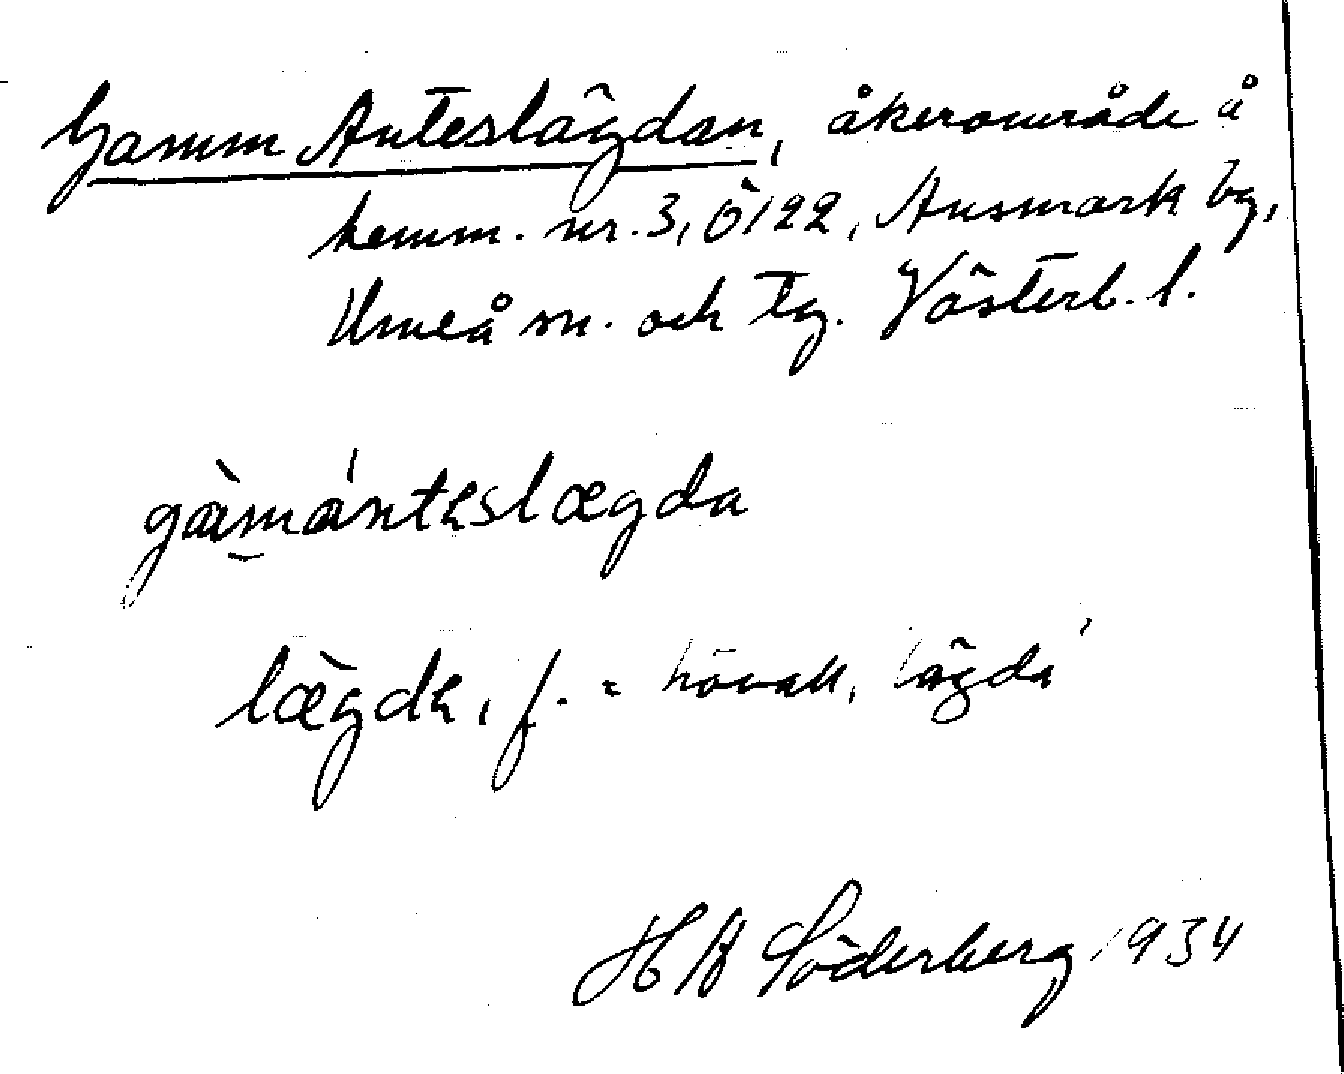 Gamm Anteslägdan, åkerområde å
hemm. nr. 3, Ö/22, Ansmark by,
Umeå sn. och tg. Västerb. l.
gàmántəslægda
lægdə, f. = hövall, lägda
H A Söderberg 1934